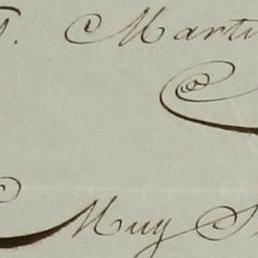 T. Marti
Muy S